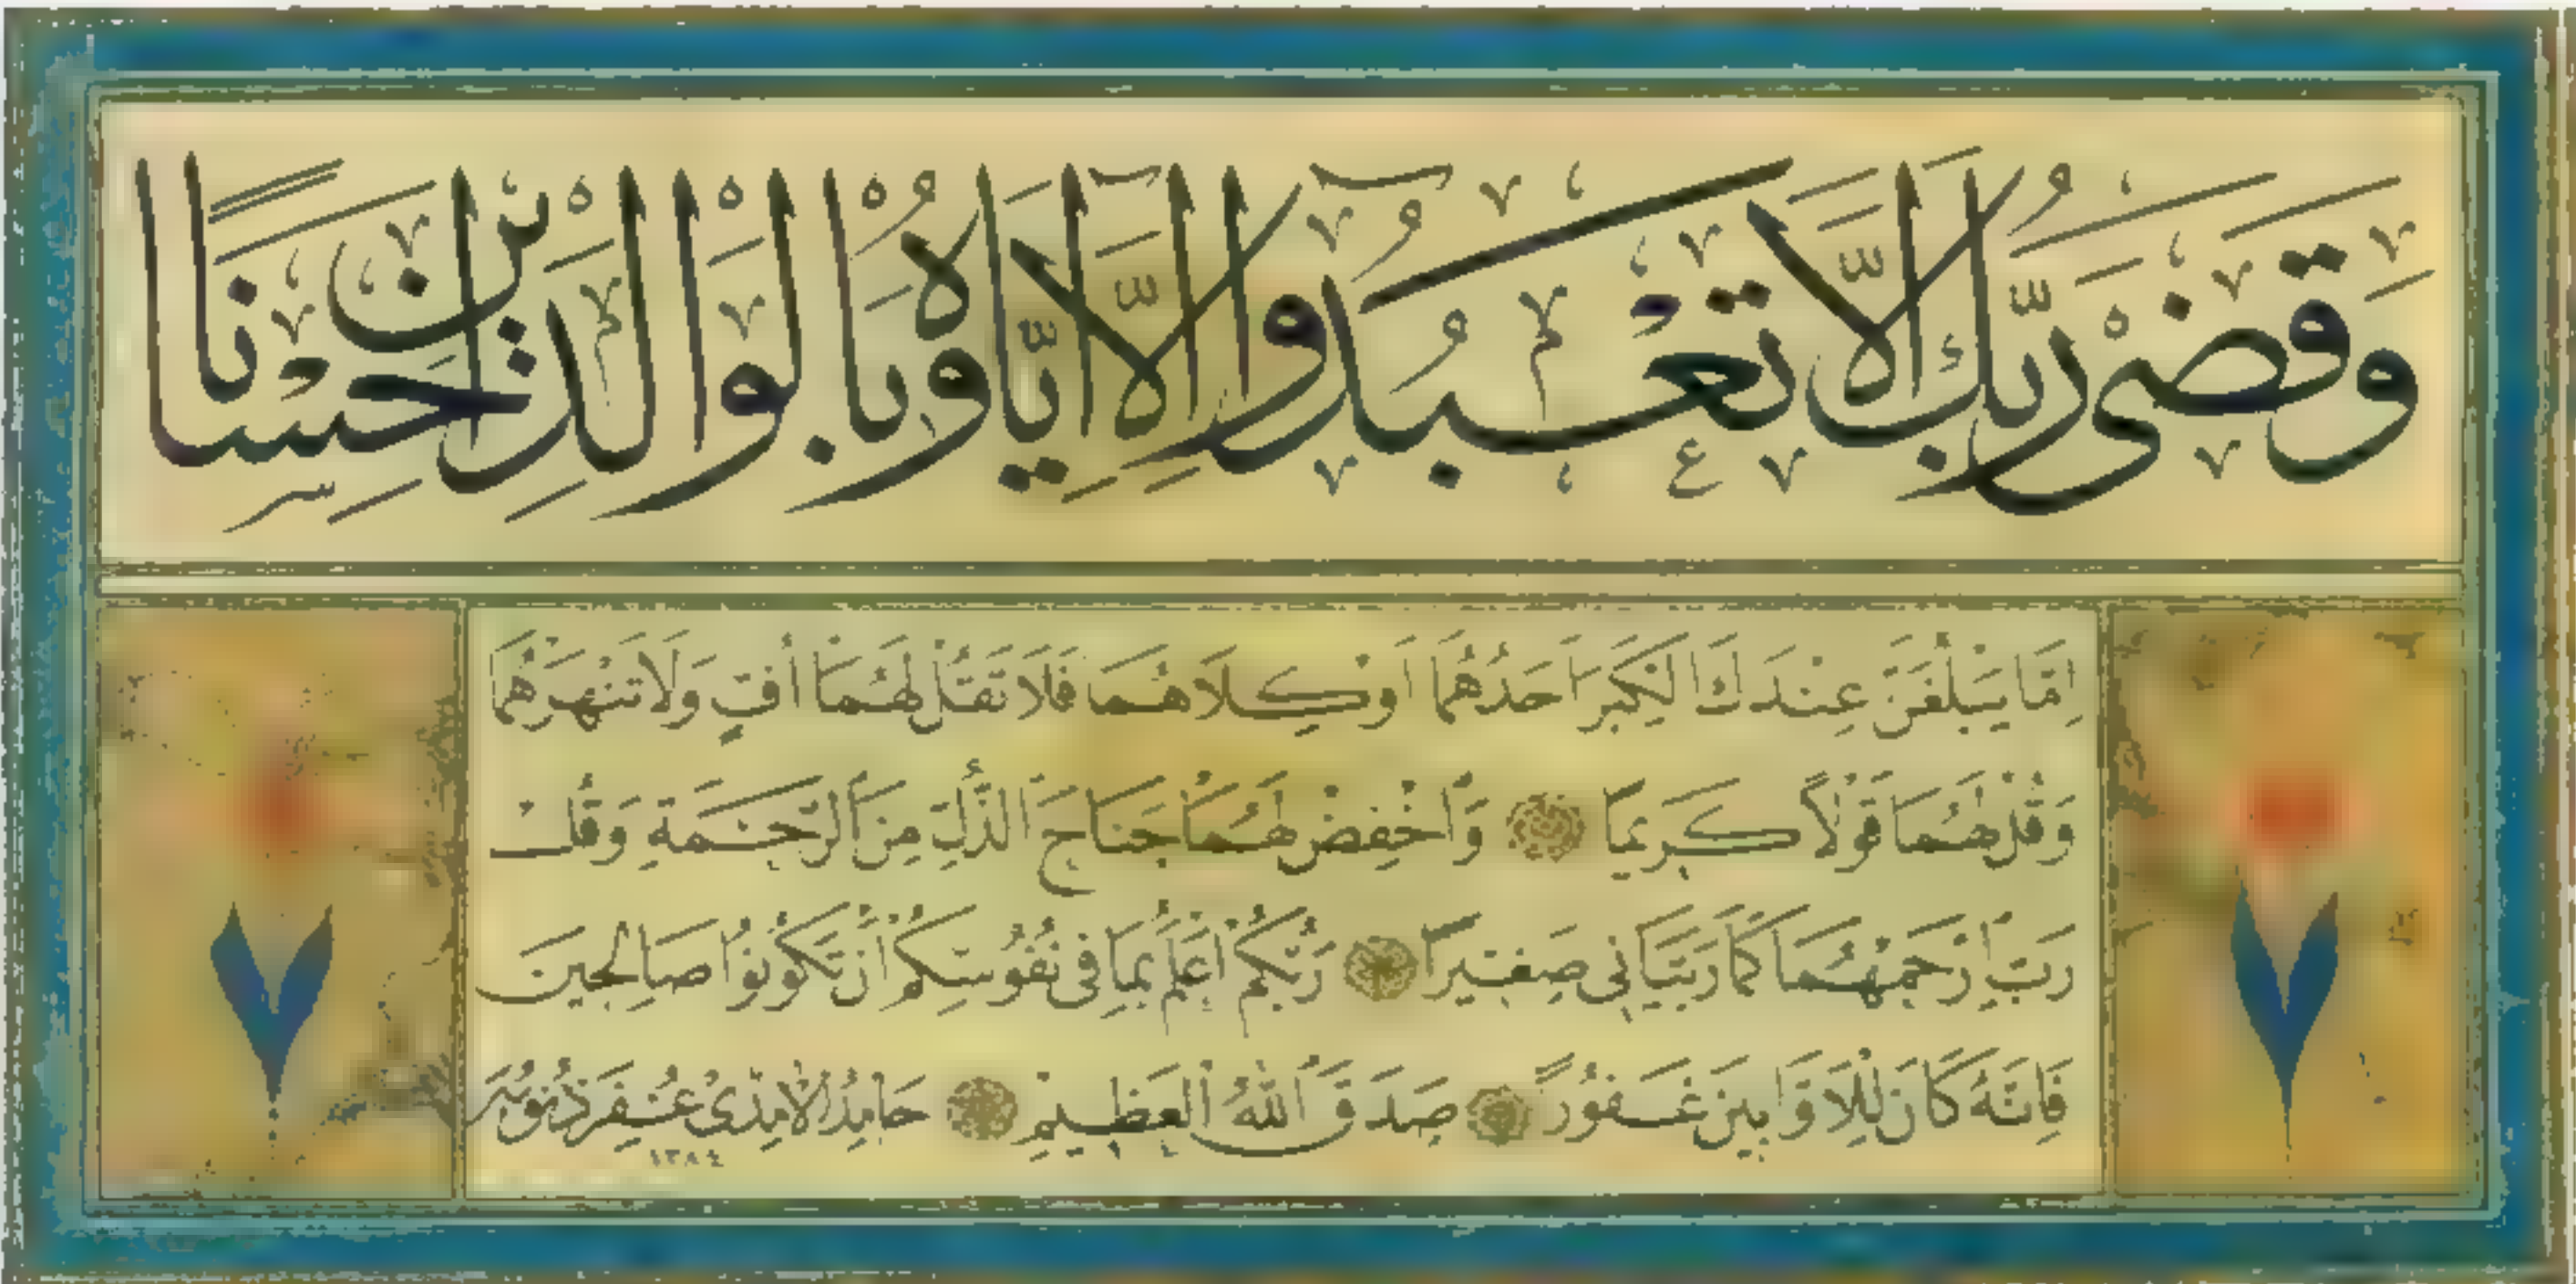 وَقَضَى رَبُّكَ اَلَّا تَعْبُدُوا اِلَّا اِيَّاهُ وَبِالْوَالِدَيْنِ اِحْسَانًا
اِمَّا يَبْلُغَنَّ عِنْدَكَ الْكِبَرَ اَحَدُهُمَا اَوْ كِلَاهُمَا فَلَا تَقُلْ لَهُمَا اُفٍّ وَلَا تَنْهَرْهُمَا
وَقُلْ لَهُمَا قَوْلًا كَرِيمًا وَاخْفِضْ لَهُمَا جَنَاحَ الذُّلِّ مِنَ الرَّحْمَةِ وَقُلْ
رَبِّ ارْحَمْهُمَا كَمَا رَبَّيَانِي صَغِيرًا رَبُّكُمْ اَعْلَمُ بِمَا فِي نُفُوسِكُمْ اِنْ تَكُونُوا صَالِحِينَ
فَاِنَّهُ كَانَ لِلْاَوَّابِينَ غَفُورًا صَدَقَ اللهُ الْعَظِيمُ حَامِدُ الْآمِدِيُّ غُفِرَ ذُنُوبُهُ
١٣٨٤